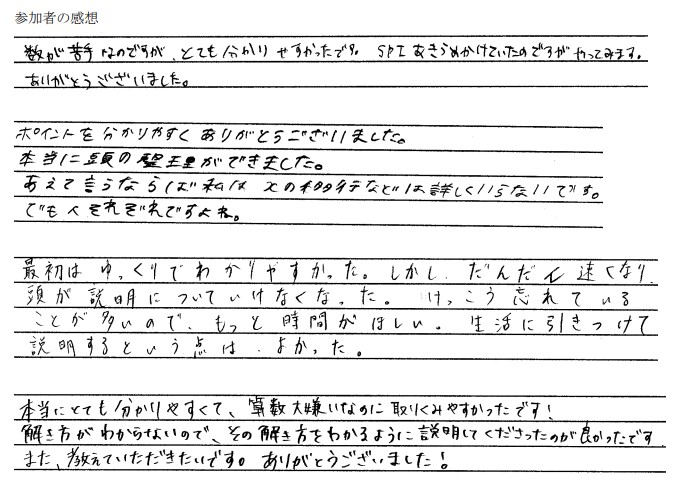 参加者の感想
数が苦手なのですが、とても分かりやすかったです。SPIあきらめかけていたのですがやってみます。
ありがとうございました。
ポイントを分かりやすくありがとうございました。
本当に頭の整理ができました。
あえて言うならば私は xの移行などは詳しくいらないです。
でも人それぞれですよね。
最初はゆっくりでわかりやすかった。しかし、だんだん速くなり、
頭が説明についていけなくなった。けっこう忘れている
ことが多いので、もっと時間がほしい。生活に引きつけて
説明するという点は、よかった。
本当にとても分かりやすくて、算数大嫌いなのに取りくみやすかったです！
解き方がわからないので、その解き方をわかるように説明してくださったのが良かったです
また、教えていただきたいです。ありがとうございました！